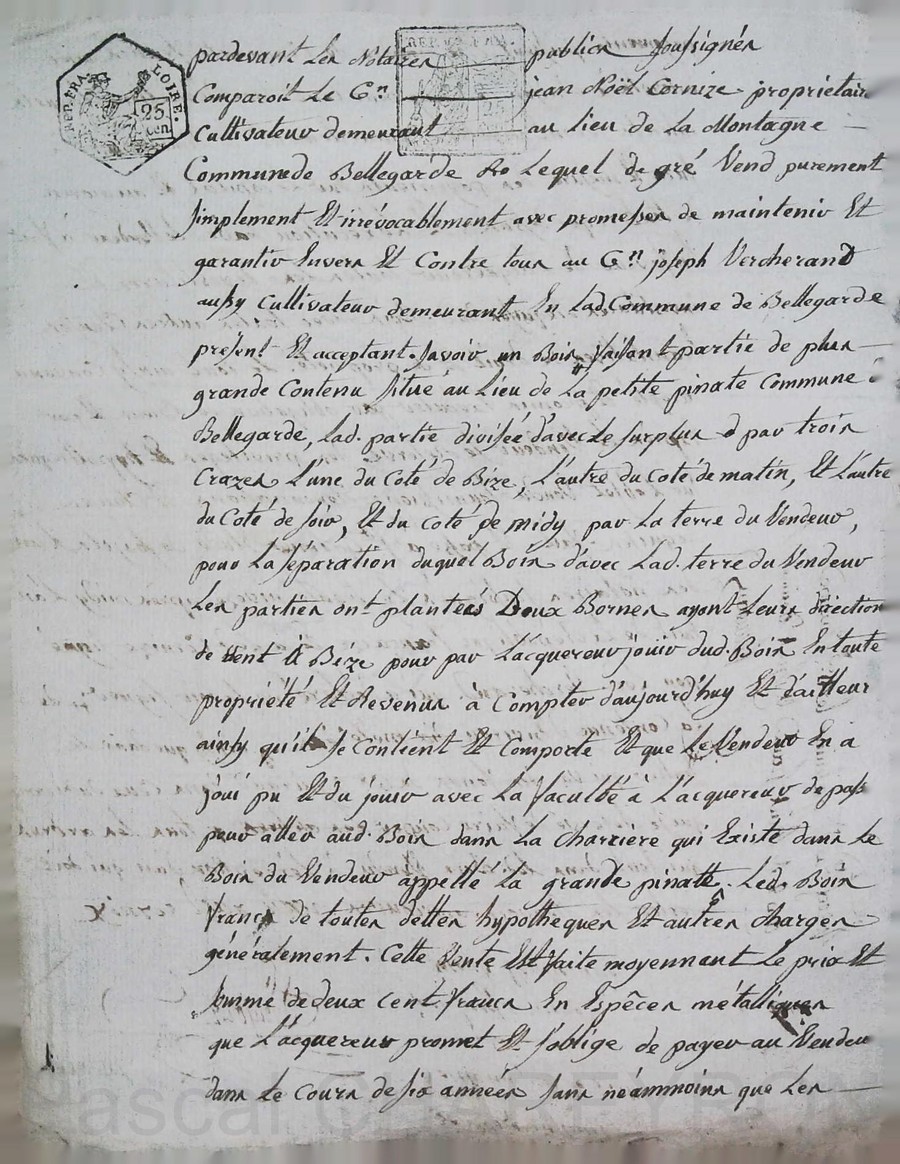 REP. FRA. LOIRE. 25 cen
REP. FRA.
pardevant Les Notaires publics soussignés
Comparoit Le C.en jean Noël Cornize propriétaire
Cultivateur demeurant au Lieu de La Montagne
Commune de Bellegarde Lequel de gré Vend purement
simplement Et irrévocablement avec promesses de maintenir Et
garantir Envers Et Contre tous au C.en joseph Vercherand
aussy Cultivateur demeurant En Lad. Commune de Bellegarde
présent Et acceptant. savoir un Bois faisant partie de plus
grande Contenu situé au Lieu de La petite pinate Commune
Bellegarde, Lad. partie divisée d'avec Le surplus par trois
Crazes L'une du Coté de Bize, L'autre du Coté de matin, Et L'autre
du Coté de soir, Et du coté de midy par La terre du Vendeur,
pour La séparation duquel Bois d'avec Lad. terre du Vendeur
Les parties ont plantées Deux Bornes ayant Leurs direction
de vent à Bize pour par L'acquereur jouir dud. Bois En toute
propriété Et Revenus à Compter d'aujourd'huy Et d'ailleur
ainsy qu'il se Contient Et Comporte Et que Le Vendeur En a
joui pu Et du jouir avec La faculté à L'acquereur de pass
pour aller aud. Bois dans La Charriere qui Existe dans Le
Bois du Vendeur appellé La grande pinatte. Led. Bois
franc de toutes dettes hypotheques Et autres Charges
généralement. Cette Vente Est faite moyennant Le prix Et
somme de deux Cent francs En Espêces métalliques
que L'acquereur promet Et s'oblige de payer au Vendeu
dans Le Cours de six années sans néammoins que Les